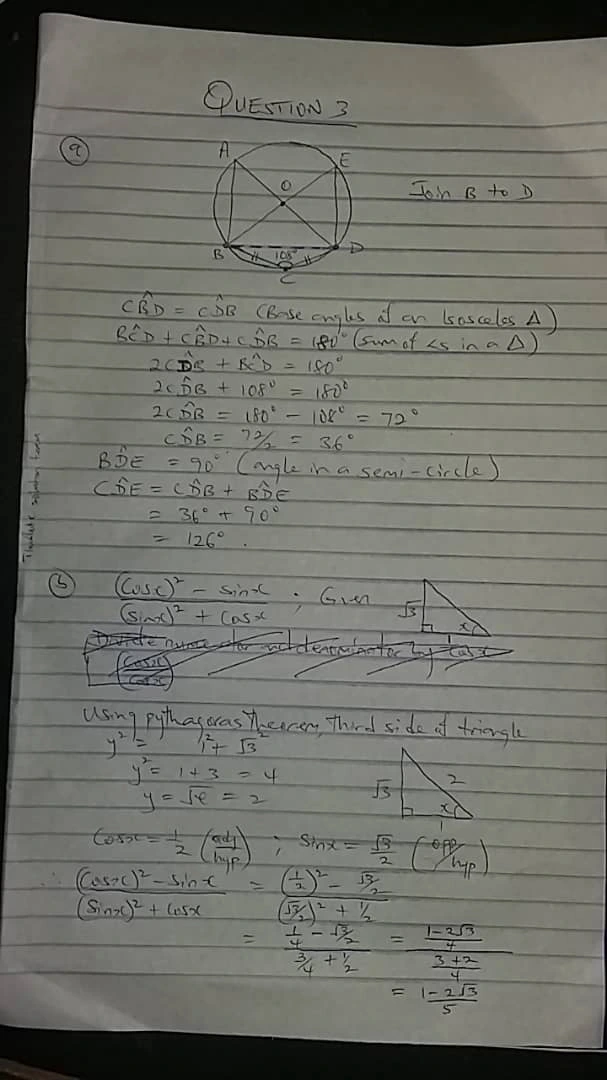 QUESTION 3
(a)
A
E
O
B
D
108°
C
Join B to D
CB̂D = CD̂B (Base angles of an Isosceles Δ)
BĈD + CB̂D + CD̂B = 180° (Sum of <s in a Δ)
2CD̂B + BĈD = 180°
2CD̂B + 108° = 180°
2CD̂B = 180° - 108° = 72°
CD̂B = 72/2 = 36°
BD̂E = 90° (angle in a semi-circle)
CD̂E = CD̂B + BD̂E
= 36° + 90°
= 126°.
(b) ((cosx)² - sinx)/((sinx)² + cosx) ; Given
√3
x
1
Divide numerator and denominator by cosx
(cosx)
(cosx)
Using pythagoras theorem, third side of triangle
y² = 1² + √3²
y² = 1+3 = 4
y = √4 = 2
√3
2
x
1
Cosx = 1/2 (adj/hyp) ; Sinx = √3/2 (opp/hyp)
∴ ((cosx)² - sinx)/((sinx)² + cosx) = ((1/2)² - √3/2)/((√3/2)² + 1/2)
= (1/4 - √3/2)/(3/4 + 1/2) = ((1-2√3)/4)/((3+2)/4)
= (1-2√3)/5